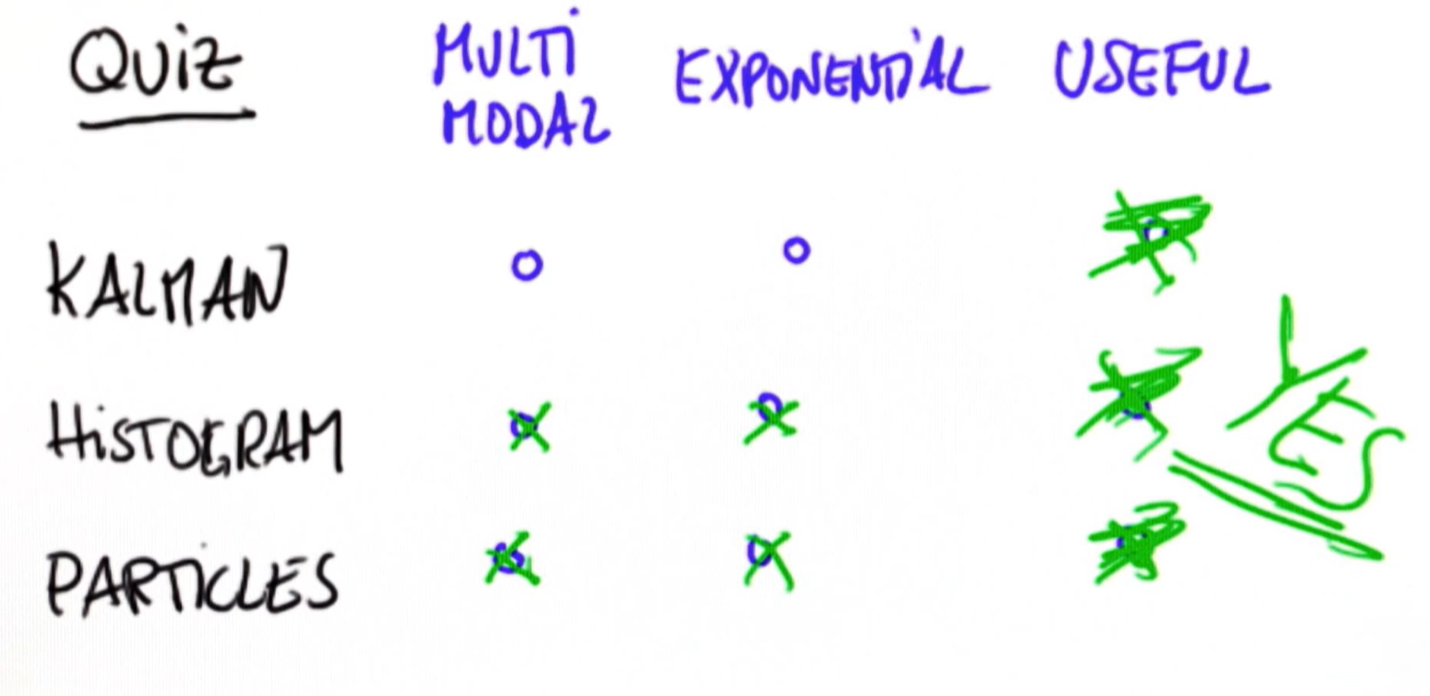 QUiZ
MULTi
MODAL
EXPONENTiAL
USEFUL
KALMAN
HiSTOGRAM
PARTiCLES
YES